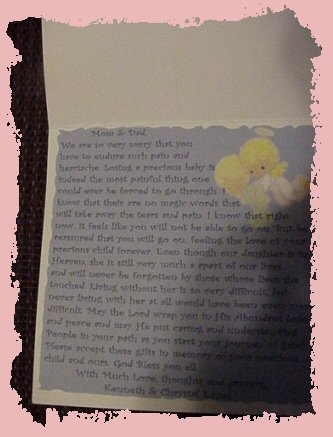 Mom & Dad,
We are so very sorry that you
have to endure such pain and
heartache. Losing a precious baby is
indeed the most painful thing one
could ever be forced to go through. I
know that their are no magic words that
will take away the tears and pain. I know that right
now, it feels like you will not be able to go on. But be
reassured that you will go on, feeling the love of your
precious child forever. Even though our daughter is in
Heaven, she is still very much a part of our lives
and will never be forgotten by those whose lives she
touched. Living without her is so very difficult, but
never living with her at all would have been even more
difficult. May the Lord wrap you in His abundant love
and peace and may He put caring and understanding
People in your path as you start your journey of grief.
Please accept these gifts in memory of your precious
child and ours. God Bless you all.
With Much Love, thoughts and prayers,
Kenneth & Chrystal